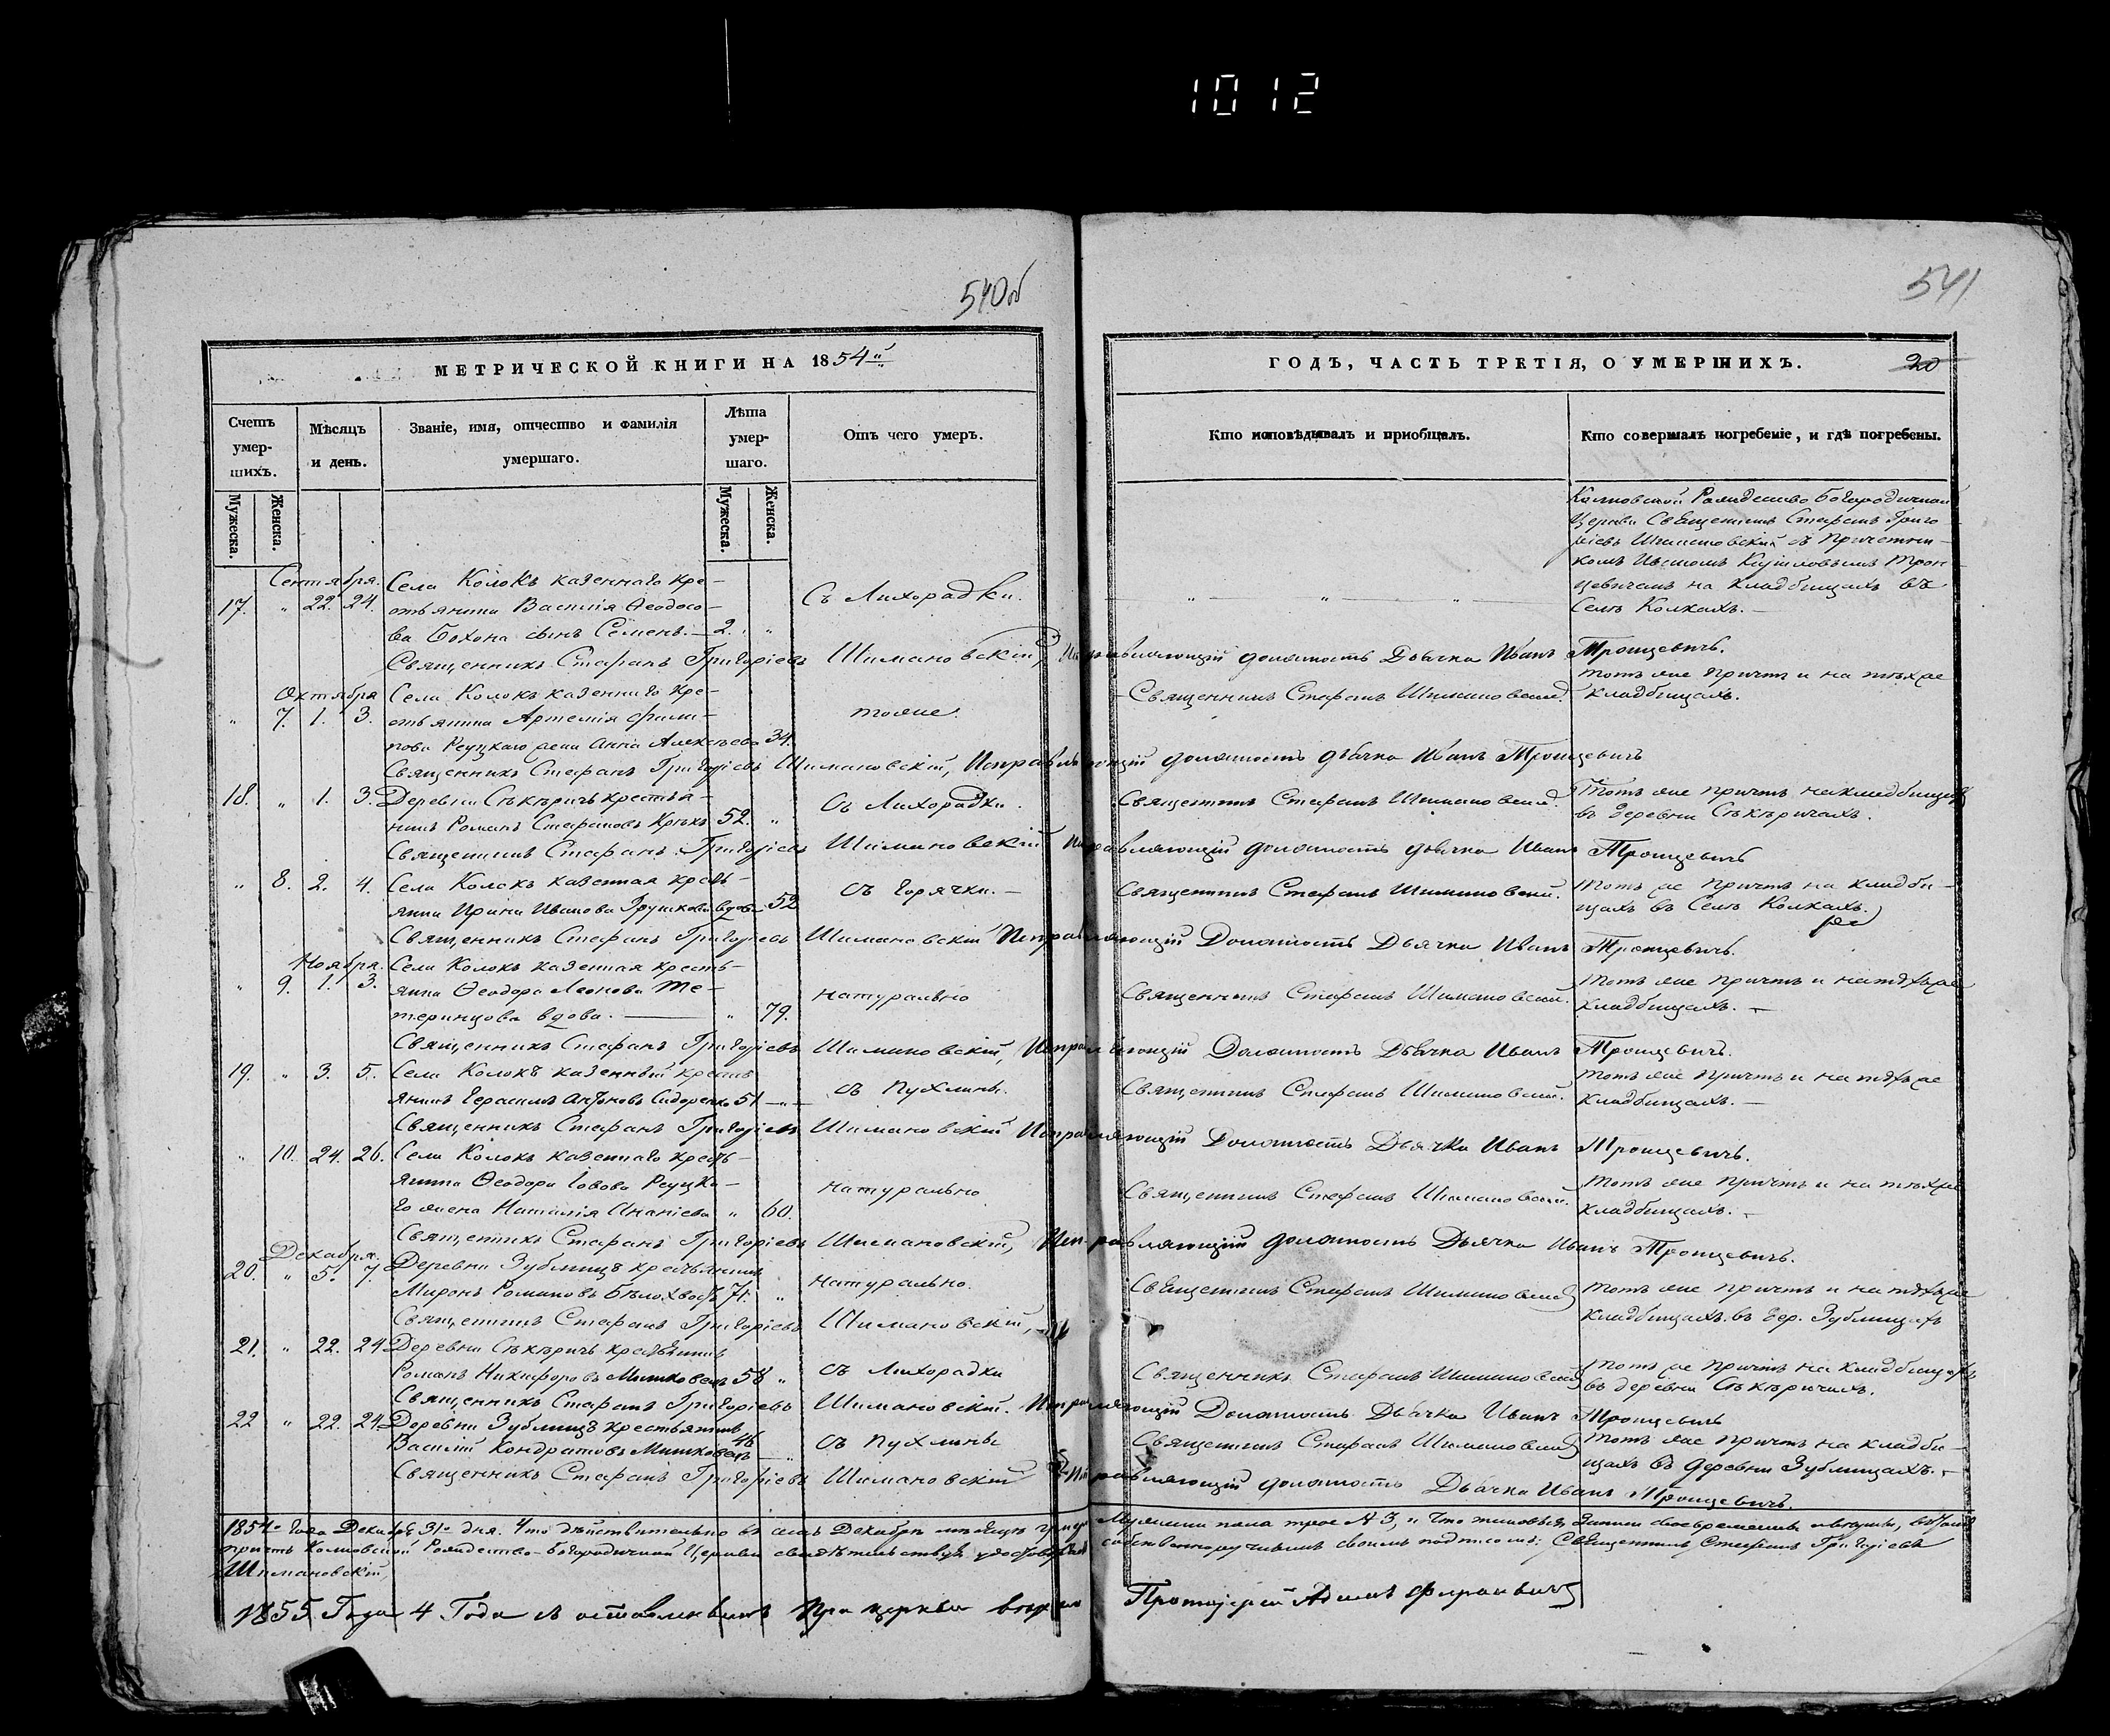 1012
540об
541
МЕТРИЧЕСКОЙ КНИГИ НА 1854й
ГОДЪ, ЧАСТЬ ТРЕТІЯ, О УМЕРШИХЪ.
20
Счетъ умер-шихъ.
Мѣсяцъ и день.
Званіе, имя, отчество и фамилія умершаго.
Лѣта умер-шаго.
Отъ чего умеръ.
Кто исповѣдывалъ и пріобщалъ.
Кто совершалъ погребеніе, и гдѣ погребены.
Мужеска.
Женска.
Мужеска.
Женска.
Рождество Богородичной
Церкви Священникъ Стефанъ Григо
ріевъ Шимановскій съ Причетни-
комъ Иваномъ Трон
цевичемъ на кладбищахъ въ
Селѣ Колкахъ.
Сентября.
17. " 22. 24.
Села Колокъ казеннаго кре-
стьянина Василія Ѳеодосо-
ва Бохона сынъ Семенъ. 2. "
Съ Лихорадки.
Священникъ Стефанъ Григоріевъ Шимановскій, Исправляющій должность Дьячка Иванъ Тронцевичъ.
Октября
" 7. 1. 3.
Села Колокъ казеннаго кре-
стьянина Артемія Фили-
пова Реуцкаго жена Анна Алексѣева 34.
тоже.
Священникъ Стефанъ Шимановскій.
тотъ же причтъ и на тѣхже
кладбищахъ.
Священникъ Стефанъ Григоріевъ Шимановскій, Исправляющій должность дьячка Иванъ Тронцевичъ
18. " 1. 3.
Деревни Сѣкѣричъ крестья-
нинъ Романъ Стефановъ 52. "
Съ Лихорадки.
Священникъ Стефанъ Шимановскій.
Тотъ же причтъ на кладбищахъ
въ деревни Сѣкѣричахъ.
Священникъ Стефанъ Григоріевъ Шимановскій Исправляющій должность дьячка Иванъ Тронцевичъ
" 8. 2. 4.
Села Колокъ казенная кресть-
янка Ирина Иванова вдова 52
съ Горячки.
Священникъ Стефанъ Шимановскій.
Тотъ же причтъ на кладби-
щахъ въ Селѣ Колкахъ.
Священникъ Стефанъ Григоріевъ Шимановскій Исправляющій Должность Дьячка Иванъ Тронцевичъ.
Ноября.
" 9. 1. 3.
Села Колокъ казенная кресть-
янка Ѳеодора Леонова Те-
теринцова вдова. " 79.
натурально
Священникъ Стефанъ Шимановскій.
тотъ же причтъ и на тѣхъже
кладбищахъ.
Священникъ Стефанъ Григоріевъ Шимановскій, Исправляющій Должность Дьячка Иванъ Тронцевичъ.
19. " 3. 5.
Села Колокъ казенный кресть
янинъ Герасимъ Антоновъ Сидоренко 51 "
съ пухлины.
Священникъ Стефанъ Шимановскій.
тотъ же причтъ и на тѣхъже
кладбищахъ.
Священникъ Стефанъ Григоріевъ Шимановскій Исправляющій Должность Дьячка Иванъ Тронцевичъ.
" 10. 24. 26.
Села Колокъ казеннаго кресть-
янина Ѳеодора Іовова Реуцка-
го жена Наталія Ананіева " 60.
натурально
Священникъ Стефанъ Шимановскій.
тотъ же причтъ и на тѣхже
кладбищахъ.
Священникъ Стефанъ Григоріевъ Шимановскій, Исправляющій должность Дьячка Иванъ Тронцевичъ.
Декабря.
20. " 5. 7.
Деревни Зублищъ крестьянинъ
Миронъ Романовъ Бѣлохвостъ 71. "
натурально.
Священникъ Стефанъ Шимановскій
тотъ же причтъ и на тѣхъже
кладбищахъ. въ дер. Зублищахъ
Священникъ Стефанъ Григоріевъ Шимановскій,
21. " 22. 24
Деревни Сѣкѣричъ крестьянинъ
Романъ Никифоровъ Мишковецъ 58 "
съ Лихорадки
Священникъ Стефанъ Шимановскій
тотъ же причтъ на кладбищахъ
въ деревни Сѣкѣричахъ.
Священникъ Стефанъ Григоріевъ Шимановскій. Исправляющій Должность Дьячка Иванъ Тронцевичъ
22 " 22. 24
Деревни Зублищъ крестьянинъ
Василій Кондратовъ Мишковецъ 46 "
съ пухлины
Священникъ Стефанъ Шимановскій
Тотъ же причтъ на кладби-
щахъ въ деревни Зублищахъ.
Священникъ Стефанъ Григоріевъ Шимановскій Исправляющій должность Дьячка Иванъ Тронцевичъ.
1854го Года Декабря 31го дня. Что дѣйствительно въ семъ Декабрѣ мѣсяцѣ умерло Мужеска пола трое № 3, и что таковыя записи своевременно
причтъ Рождество-Богородичной Церкви свидѣтельствуя собственноручнымъ своимъ подписомъ: Священникъ Стефанъ Григоріевъ
Шимановскій,
1855 Года 4 Года съ оставленнымъ при церкви Протоіерей Адамъ